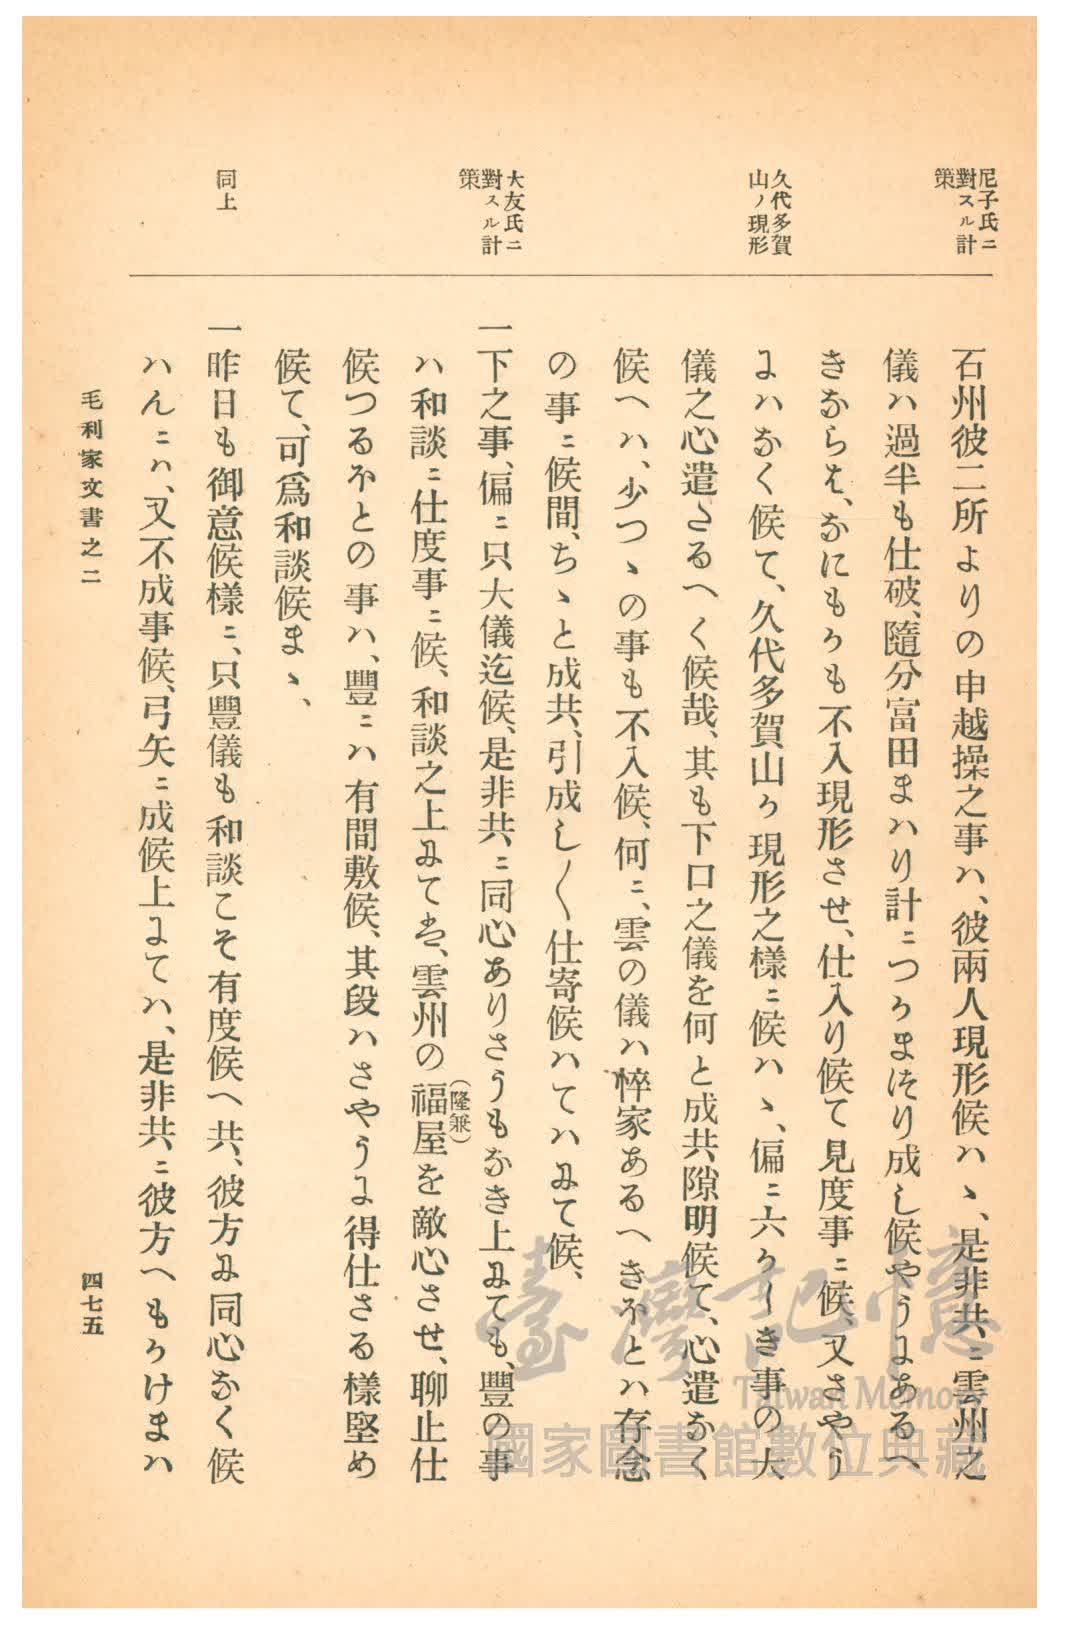 尼子氏ニ
對スル計
策
久代多賀
山ノ現形
大友氏ニ
對スル計
策
同上
石州彼二所よりの申越操之事ハ、彼兩人現形候ハヽ、是非共ニ雲州之
儀ハ過半も仕破、隨分富田まハり計ニつかまつり成し候やうにあるへ
きならは、なにもかも不入現形させ、仕入り候て見度事ニ候、又さやう
にハなく候て、久代多賀山か現形之樣ニ候ハヽ、偏ニ六かしき事の大
儀之心遣たるへく候哉、其も下口之儀を何と成共隙明候て、心遣なく
候へハ、少つヽの事も不入候、何ニ、雲の儀ハ悴家あるへきほとハ存念
の事ニ候間、ちヽと成共、引成し〱仕寄候ハてハにて候、
一下之事、偏ニ只大儀迄候、是非共ニ同心ありさうもなき上にても、豐の事
ハ和談ニ仕度事ニ候、和談之上にては、雲州の福屋を敵心させ、聊止仕
(隆兼)
候つるほとの事ハ、豐ニハ有間敷候、其段ハさやうに得仕さる樣堅め
候て、可爲和談候まヽ、
一昨日も御意候樣ニ、只豐儀も和談こそ有度候へ共、彼方に同心なく候
ハんニハ、又不成事候、弓矢ニ成候上にてハ、是非共ニ彼方へもかけまハ
毛利家文書之二
四七五
臺灣記憶
Taiwan Memory
國家圖書館數位典藏